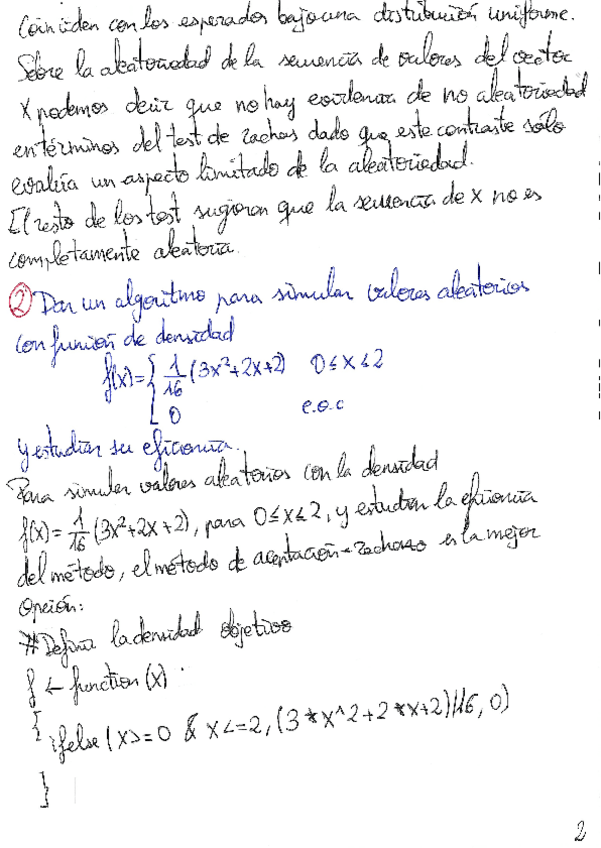 Coinciden con los esperados bajo una distribución uniforme.
Sobre la aleatoriedad de la secuencia de valores del vector
x podemos decir que no hay evidencia de no aleatoriedad
en términos del test de rachas dado que este contraste sólo
evalúa un aspecto limitado de la aleatoriedad.
El resto de los test sugieren que la secuencia de x no es
completamente aleatoria.
② Dar un algoritmo para simular valores aleatorios
con función de densidad
f(x)={ 1/16 (3x²+2x+2) 0≤x≤2
0 e.o.c
y estudiar su eficiencia.
Para simular valores aleatorios con la densidad
f(x)= 1/16 (3x²+2x+2), para 0≤x≤2, y estudiar la eficiencia
del método, el método de aceptación-rechazo es la mejor
opción:
# Definir la densidad objetivo
f ← function(x)
{
ifelse(x>=0 & x<=2, (3*x^2+2*x+2)/16, 0)
}
2